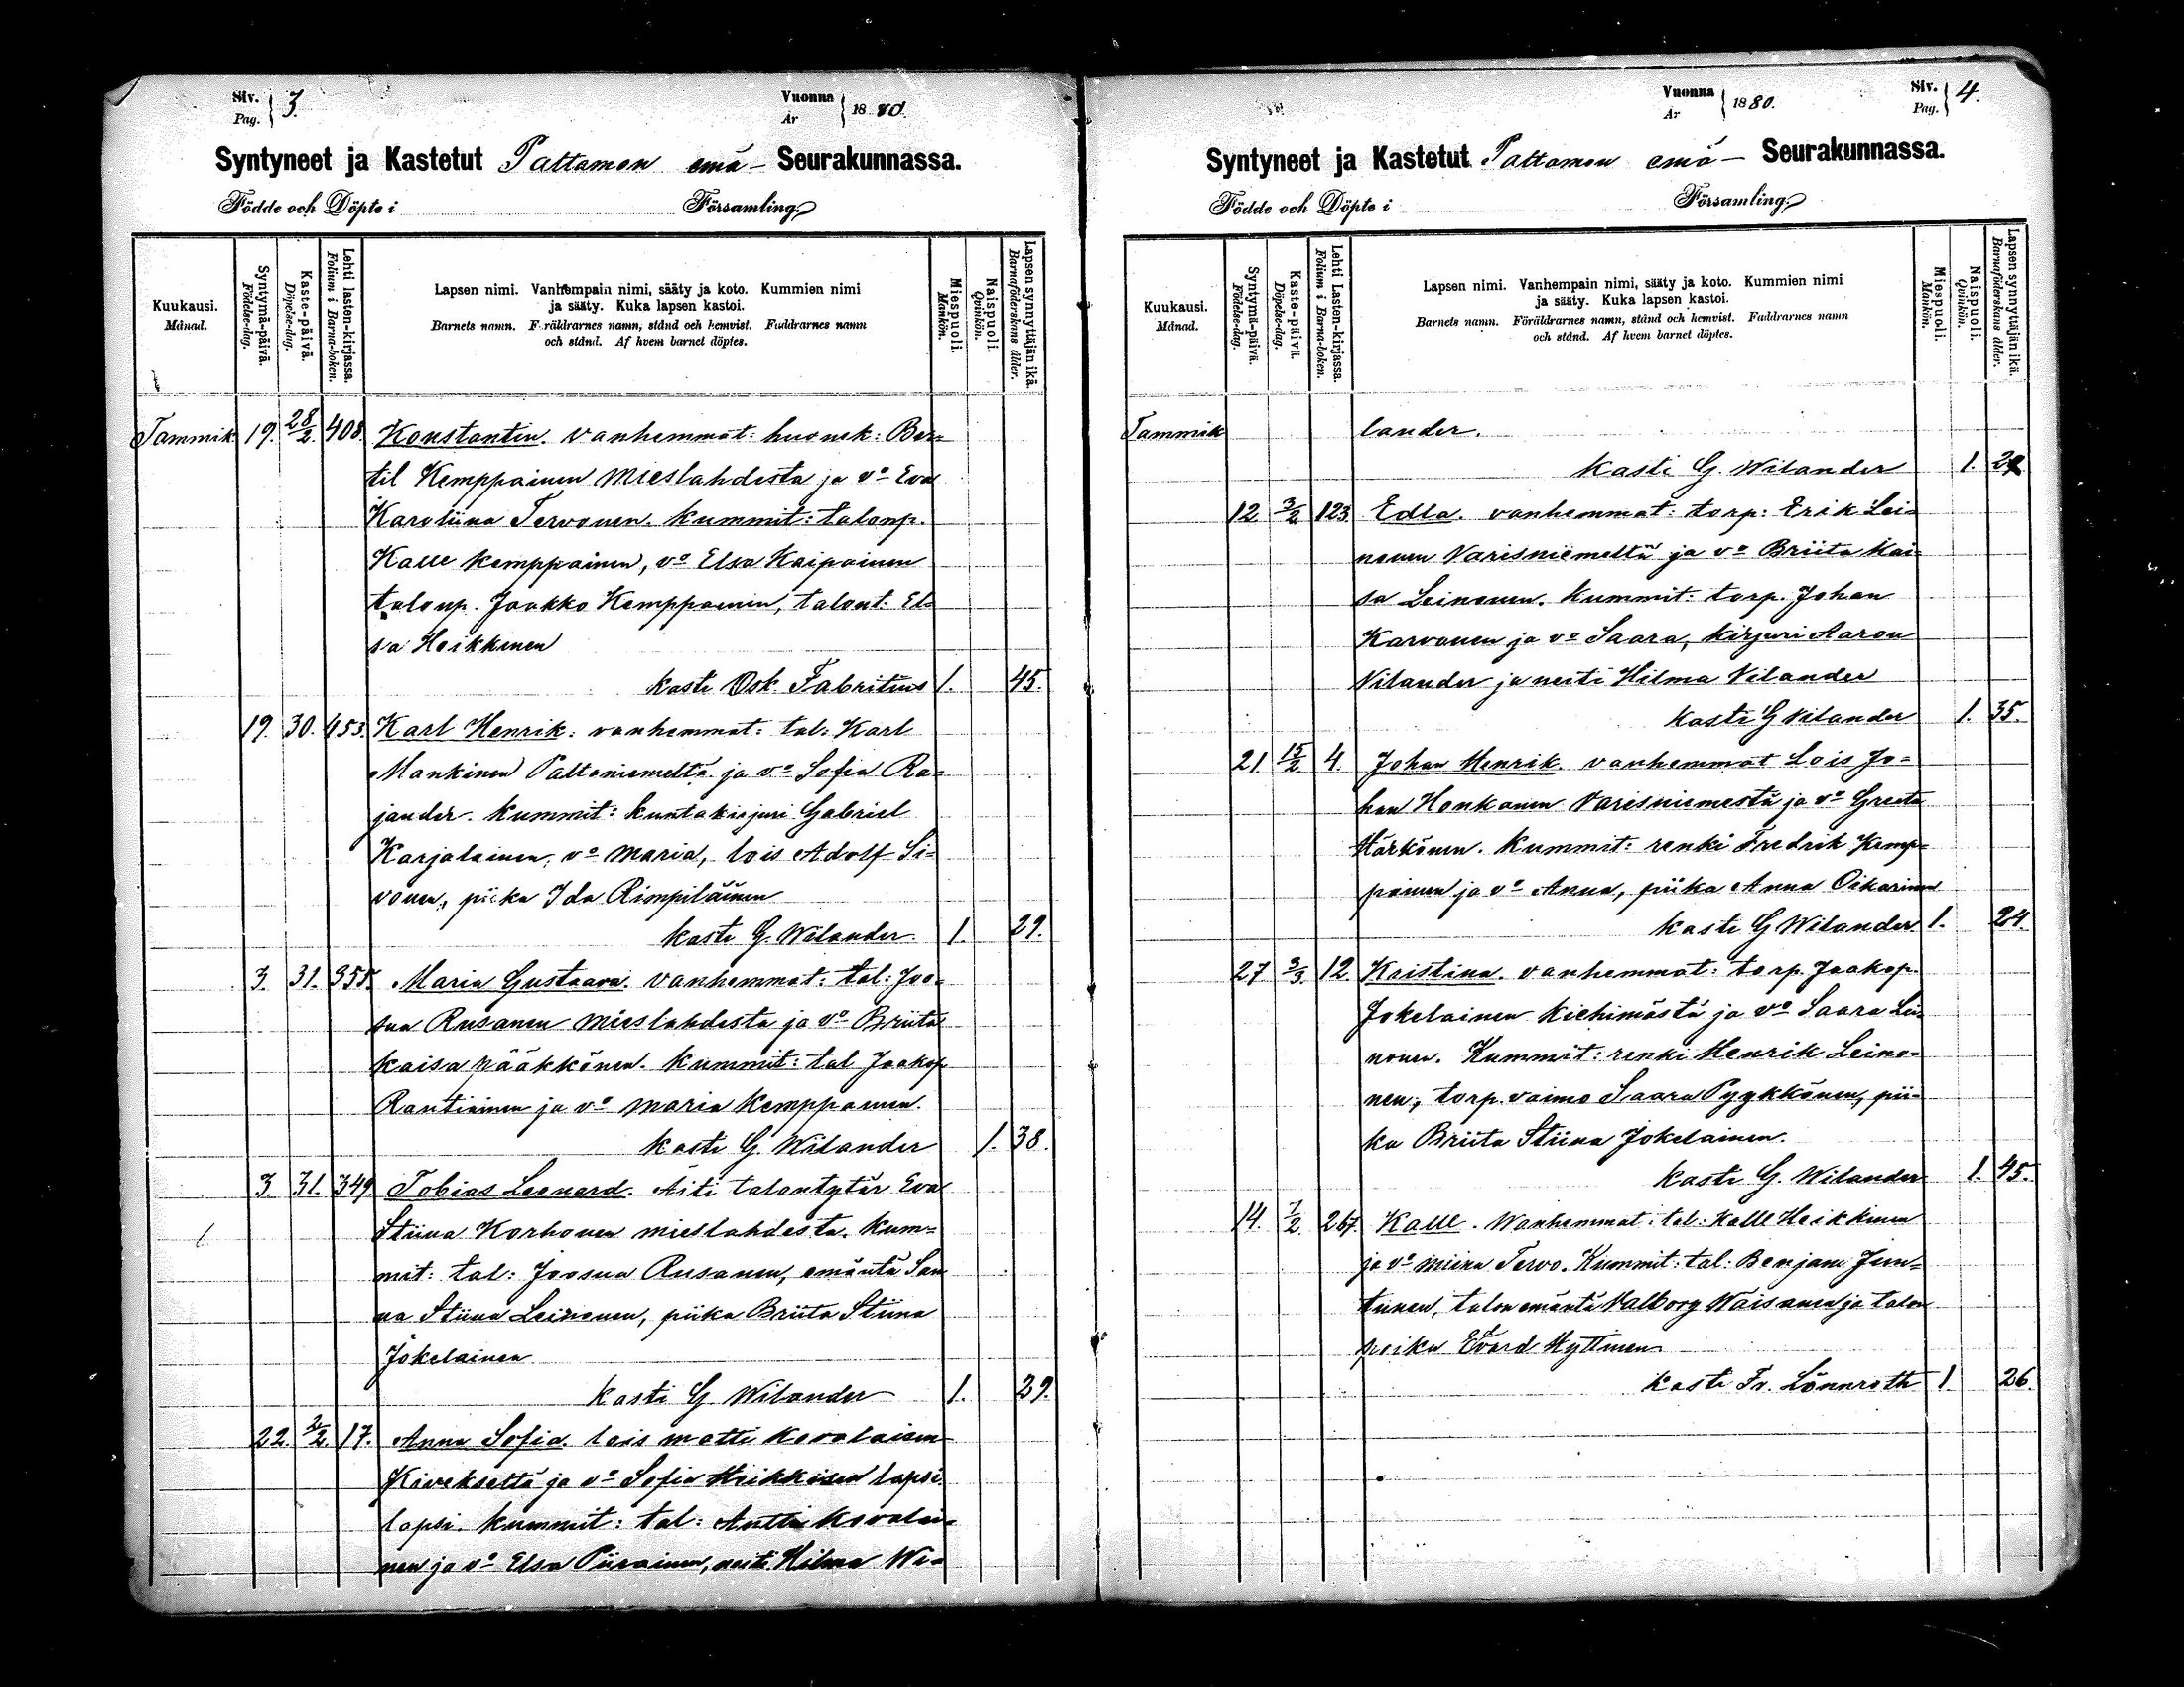 Siv. Pag. 3.
Vuonna År 1880.
Syntyneet ja Kastetut Paltamon emä- Seurakunnassa.
Födde och Döpte i Församling.
Kuukausi. Månad.
Syntymä-päivä. Födelse-dag.
Kaste-päivä. Döpelse-dag.
Lehti lasten-kirjassa. Folium i Barna-boken.
Lapsen nimi. Vanhempain nimi, sääty ja koto. Kummien nimi
ja sääty. Kuka lapsen kastoi.
Barnets namn. Föräldrarnes namn, stånd och hemvist. Faddrarnes namn
och stånd. Af hvem barnet döptes.
Miespuoli. Mankön.
Naispuoli. Qvinkön.
Lapsen synnyttäjän ikä. Barnaföderskans ålder.
Tammik. 19. 28/2. 408. Konstantin. vanhemmat: huonek: Ber=
til Kemppainen Mieslahdesta ja vo Eva
Karoliina Tervonen. Kummit: talonp.
Kalle Kemppainen, vo Elsa Kaipainen
talonp. Jaakko Kemppainen, talont: El=
sa Heikkinen
kasti Osk. Fabritius 1. 45.
19. 30. 453. Karl Henrik: vanhemmat: tal: Karl
Mankinen Paltaniemeltä ja vo Sofia Ra=
jander. Kummit: kuntakirjuri Gabriel
Karjalainen, vo Maria, lois Adolf Si=
vonen, piika Ida Rimpiläinen
kasti G. Wilander 1. 29.
3. 31. 355. Maria Gustaava. vanhemmat: tal: Joo=
sua Rusanen Mieslahdesta ja vo Briita
Kaisa Pääkkönen. Kummit: tal Jaakop
Rautiainen ja vo Maria Kemppainen.
kasti G. Wilander 1. 38.
3. 31. 349 Tobias Leonard. Äiti talontytär Eva
Stiina Korhonen mieslahdesta. Kum=
mit: tal: Joosua Rusanen, emäntä San
na Stiina Leinonen, piika Briita Stiina
Jokelainen
kasti G Wilander 1. 29.
22. 2/2. 17. Anna Sofia. lois Matti Kovalaisen
Kivekseltä ja vo Sofia Heikkisen lapsi
lapsi. kummit: tal: Antti Kovalai=
nen ja vo Elsa Piirainen, neiti Hilma Wi=
Vuonna År 1880.
Siv. Pag. 4.
Syntyneet ja Kastetut Paltamon emä- Seurakunnassa.
Födde och Döpte i Församling.
Kuukausi. Månad.
Syntymä-päivä. Födelse-dag.
Kaste-päivä. Döpelse-dag.
Lehti Lasten-kirjassa. Folium i Barna-boken.
Lapsen nimi. Vanhempain nimi, sääty ja koto. Kummien nimi
ja sääty. Kuka lapsen kastoi.
Barnets namn. Föräldrarnes namn, stånd och hemvist. Faddrarnes namn
och stånd. Af hvem barnet döptes.
Miespuoli. Mankön.
Naispuoli. Qvinkön.
Lapsen synnyttäjän ikä. Barnaföderskans ålder.
Tammik lander.
kasti G. Wilander 1.
12 3/2 123 Edla. vanhemmat: torp: Erik Lei=
nonen Varisniemeltä ja vo Briita Kai
sa Leinonen. Kummit: torp. Johan
Karvonen ja vo Saara, kirjuri Aaron
Vilander ja neiti Hilma Vilander
kasti G Vilander 1. 35.
21. 15/2 4. Johan Henrik. vanhemmat Lois Jo=
han Honkanen Varisniemestä ja vo Greeta
Härkönen. Kummit: renki Fredrik Kemp=
painen ja vo Anna, piika Anna Oikarinen
kasti G Wilander 1. 24.
27 3/3. 12. Kristina. vanhemmat: torp. Jaakop.
Jokelainen Kiehimästä ja vo Saara Lei=
nonen. Kummit: renki Henrik Leino=
nen, torp. vaimo Saara Pyykkönen, pii=
ka Briita Stiina Jokelainen.
kasti G. Wilander 1. 45.
14. 7/2. 267. Kalle. Wanhemmat: tal: Kalle Heikkinen
ja vo Miina Tervo. Kummit: tal: Benjam Jun=
tunen, talon emäntä Valborg Wäisänen ja talon
poika Edvard Hyttinen
kasti Fr. Lönnroth 1. 26.